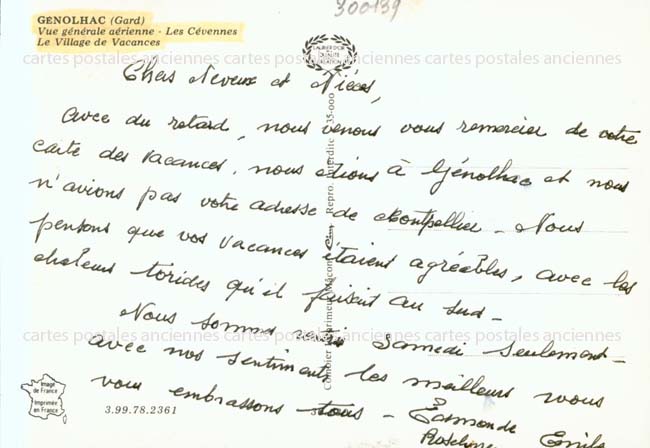 300139
GÉNOLHAC (Gard)
Vue générale aérienne - Les Cévennes
Le Village de Vacances
cartes postales anciennes cartes postales anciennes cartes postales anciennes
Chers Neveux et Nièces,
Avec du retard, nous venons vous remercier de votre
carte des vacances, nous étions à Génolhac et nous
n'avions pas votre adresse de Montpellier - Nous
pensons que vos vacances étaient agréables, avec les
chaleurs torides qu'il faisait au sud -
Nous sommes Samedi seulement -
cartes postales anciennes cartes postales anciennes cartes postales anciennes
avec nos sentiments les meilleurs nous
vous embrassons tous - Esmonde Emile
Image
de France
Imprimée
en France
3.99.78.2361
Combier Imprimeur Mâcon Repro. Interdite 35-000